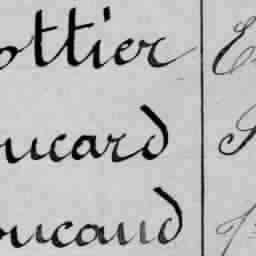 ottier E
oucard
oucaud